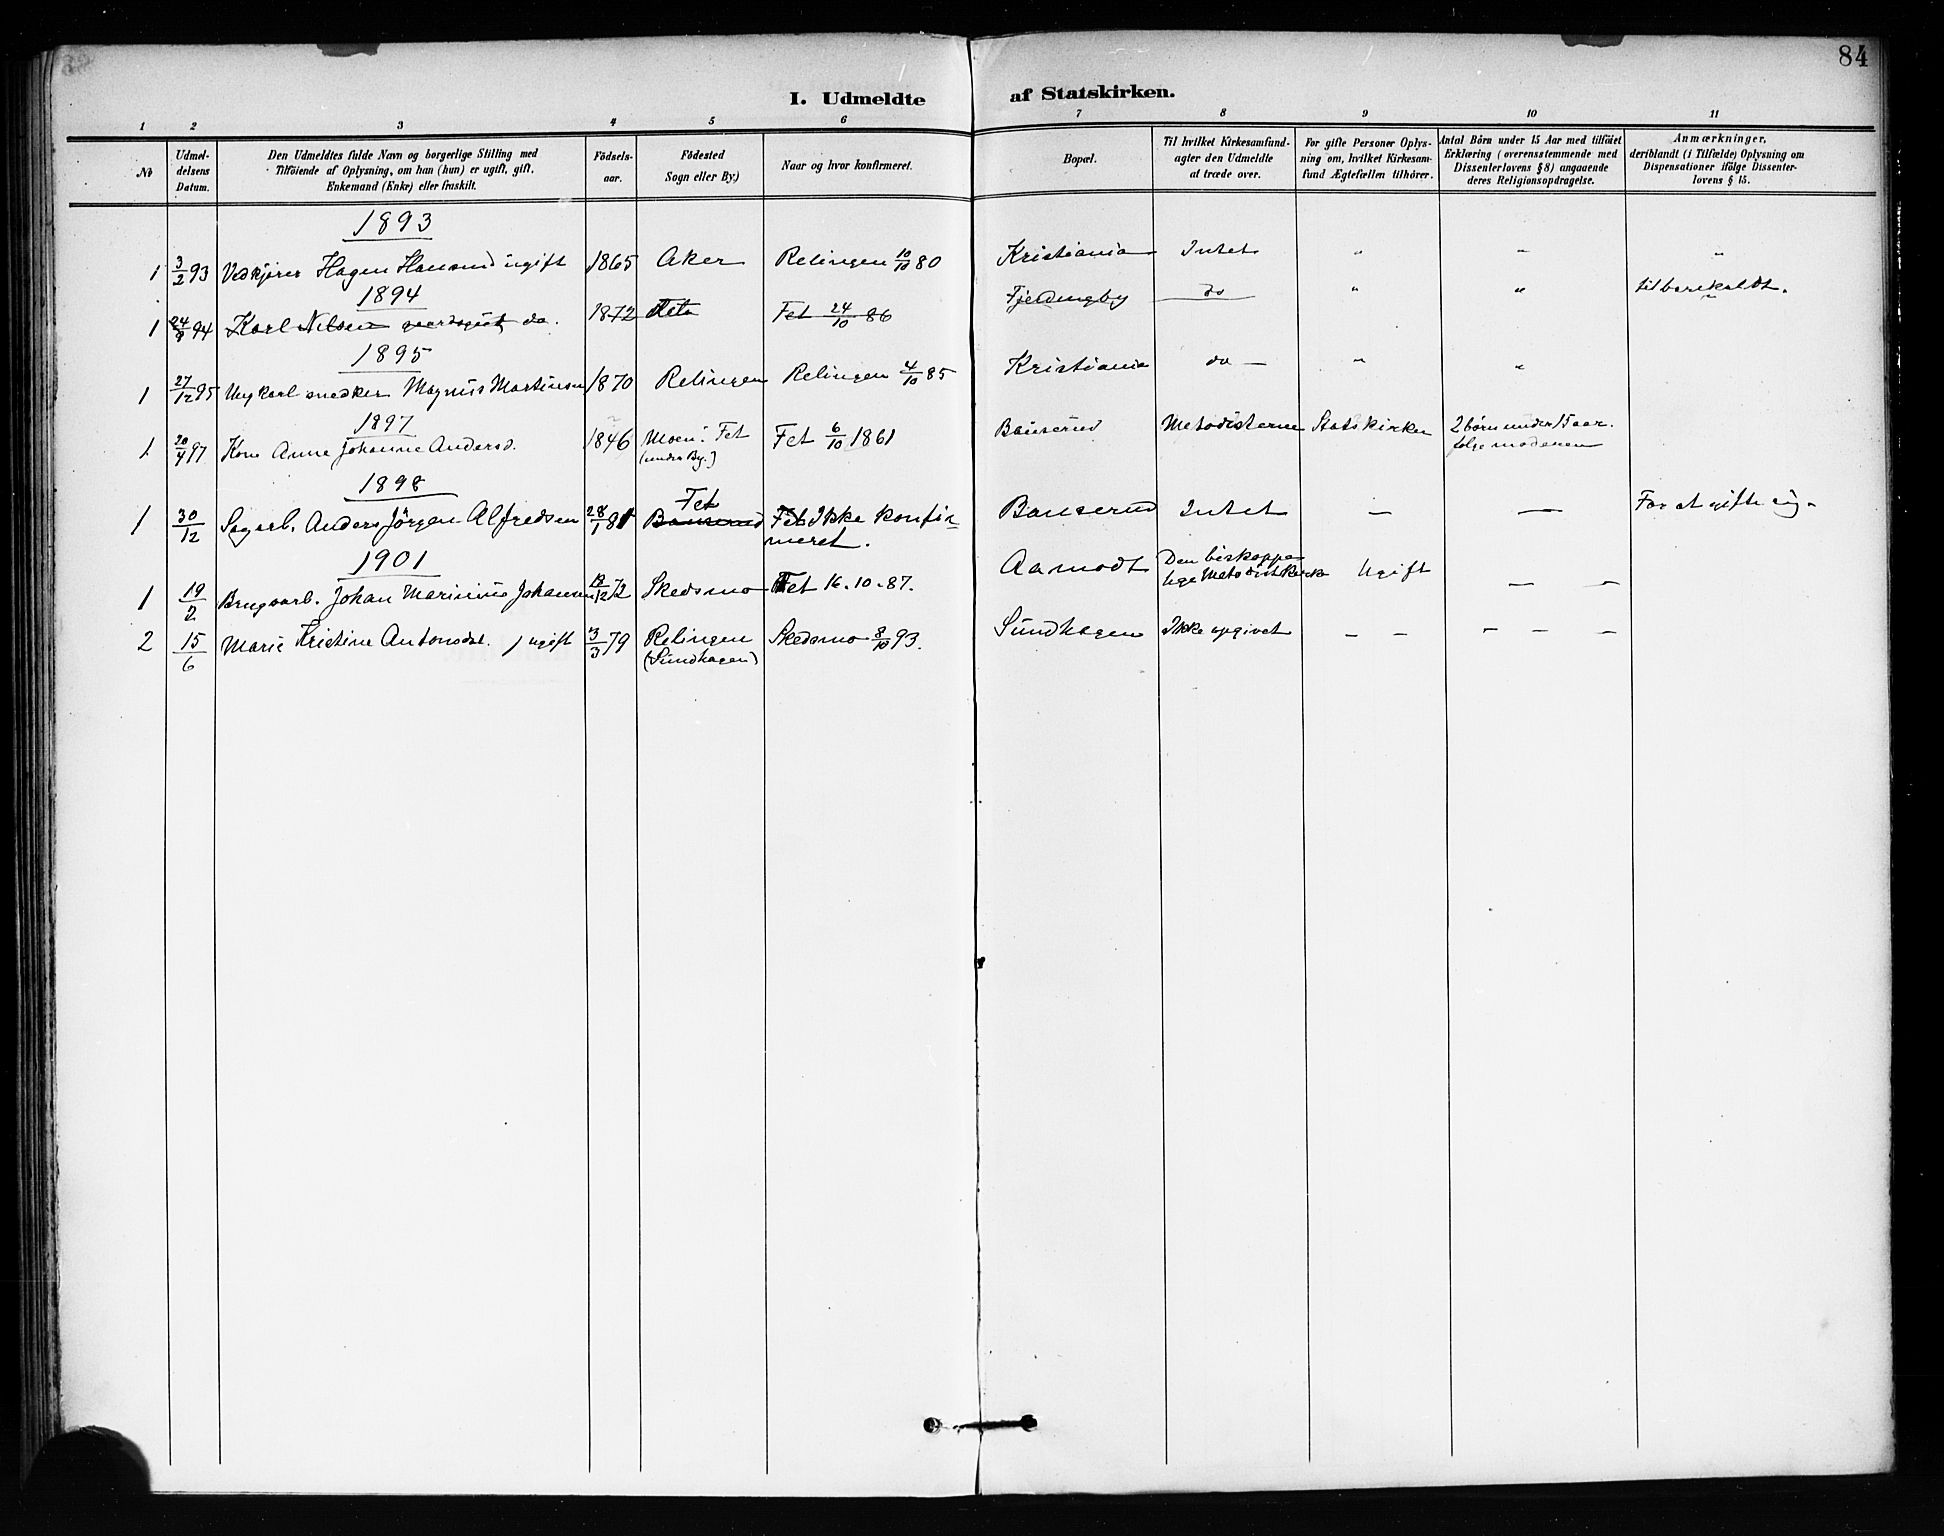 84
I. Udmeldte af Statskirken.
1 2 3 4 5 6 7 8 9 10 11
No
Udmel-
delsens
Datum.
Den Udmeldtes fulde Navn og borgerlige Stilling med
Tilföiende af Oplysning, om han (hun) er ugift, gift,
Enkemand (Enke) eller fraskilt.
Födsels-
aar.
Födested
Sogn eller By.)
Naar og hvor konfirmeret.
Bopæl.
Til hvilket Kirkesamfund-
agter den Udmeldte
at træde over.
For gifte Personer Oplys-
ning om, hvilket Kirkesam-
fund Ægtefællen tilhörer.
Antal Börn under 15 Aar med tilföiet
Erklæring (overensstemmende med
Dissenterlovens § 8) angaaende
deres Religionsopdragelse.
Anmærkninger,
deriblandt (i Tilfælde) Oplysning om
Dispensationer ifölge Dissenter-
lovens § 15.
1893
1 3/2 93 Vedkjører Hagen Hansen ugift 1865 Aker Relingen 10/10 80 Kristiania Intet " - "
1894
1 24/8 94 Karl Nilsen do. 1872 Fet Fet 24/10 86 Fjeldingby do " " tilbarekaldt.
1895
1 27/12 95 Ungkarl snedker Magnus Martinsen 1870 Relingen Relingen 4/10 85 Kristiania do — " "
1897
1 20/4 97 Kone Anne Johanne Andersd. 1846 Moen: Fet Fet 6/10 1861 Bauserud Metodisterne Statskirken 2 børn under 15 aar.
(under By.) følge moderen
1898
1 30/12 Sagarb. Anders Jörgen Alfredsen 28/1 81 Fet Bauserud Fet Ikke konfir- Bauserud Intet — — For at gifte sig.
meret.
1901
1 19/2 Brugsarb. Johan Marinius Johansen 18/12 72 Skedsmo Fet 16-10-87. Aamodt Den biskoppe- Ugift — —
lige Metodistkirke
2 15/6 Marie Kristine Antonsdt. , ugift 3/3 79 Relingen Skedsmo 8/10 93. Sundhagen Ikke opgivet — — — — —
(Sundhagen)